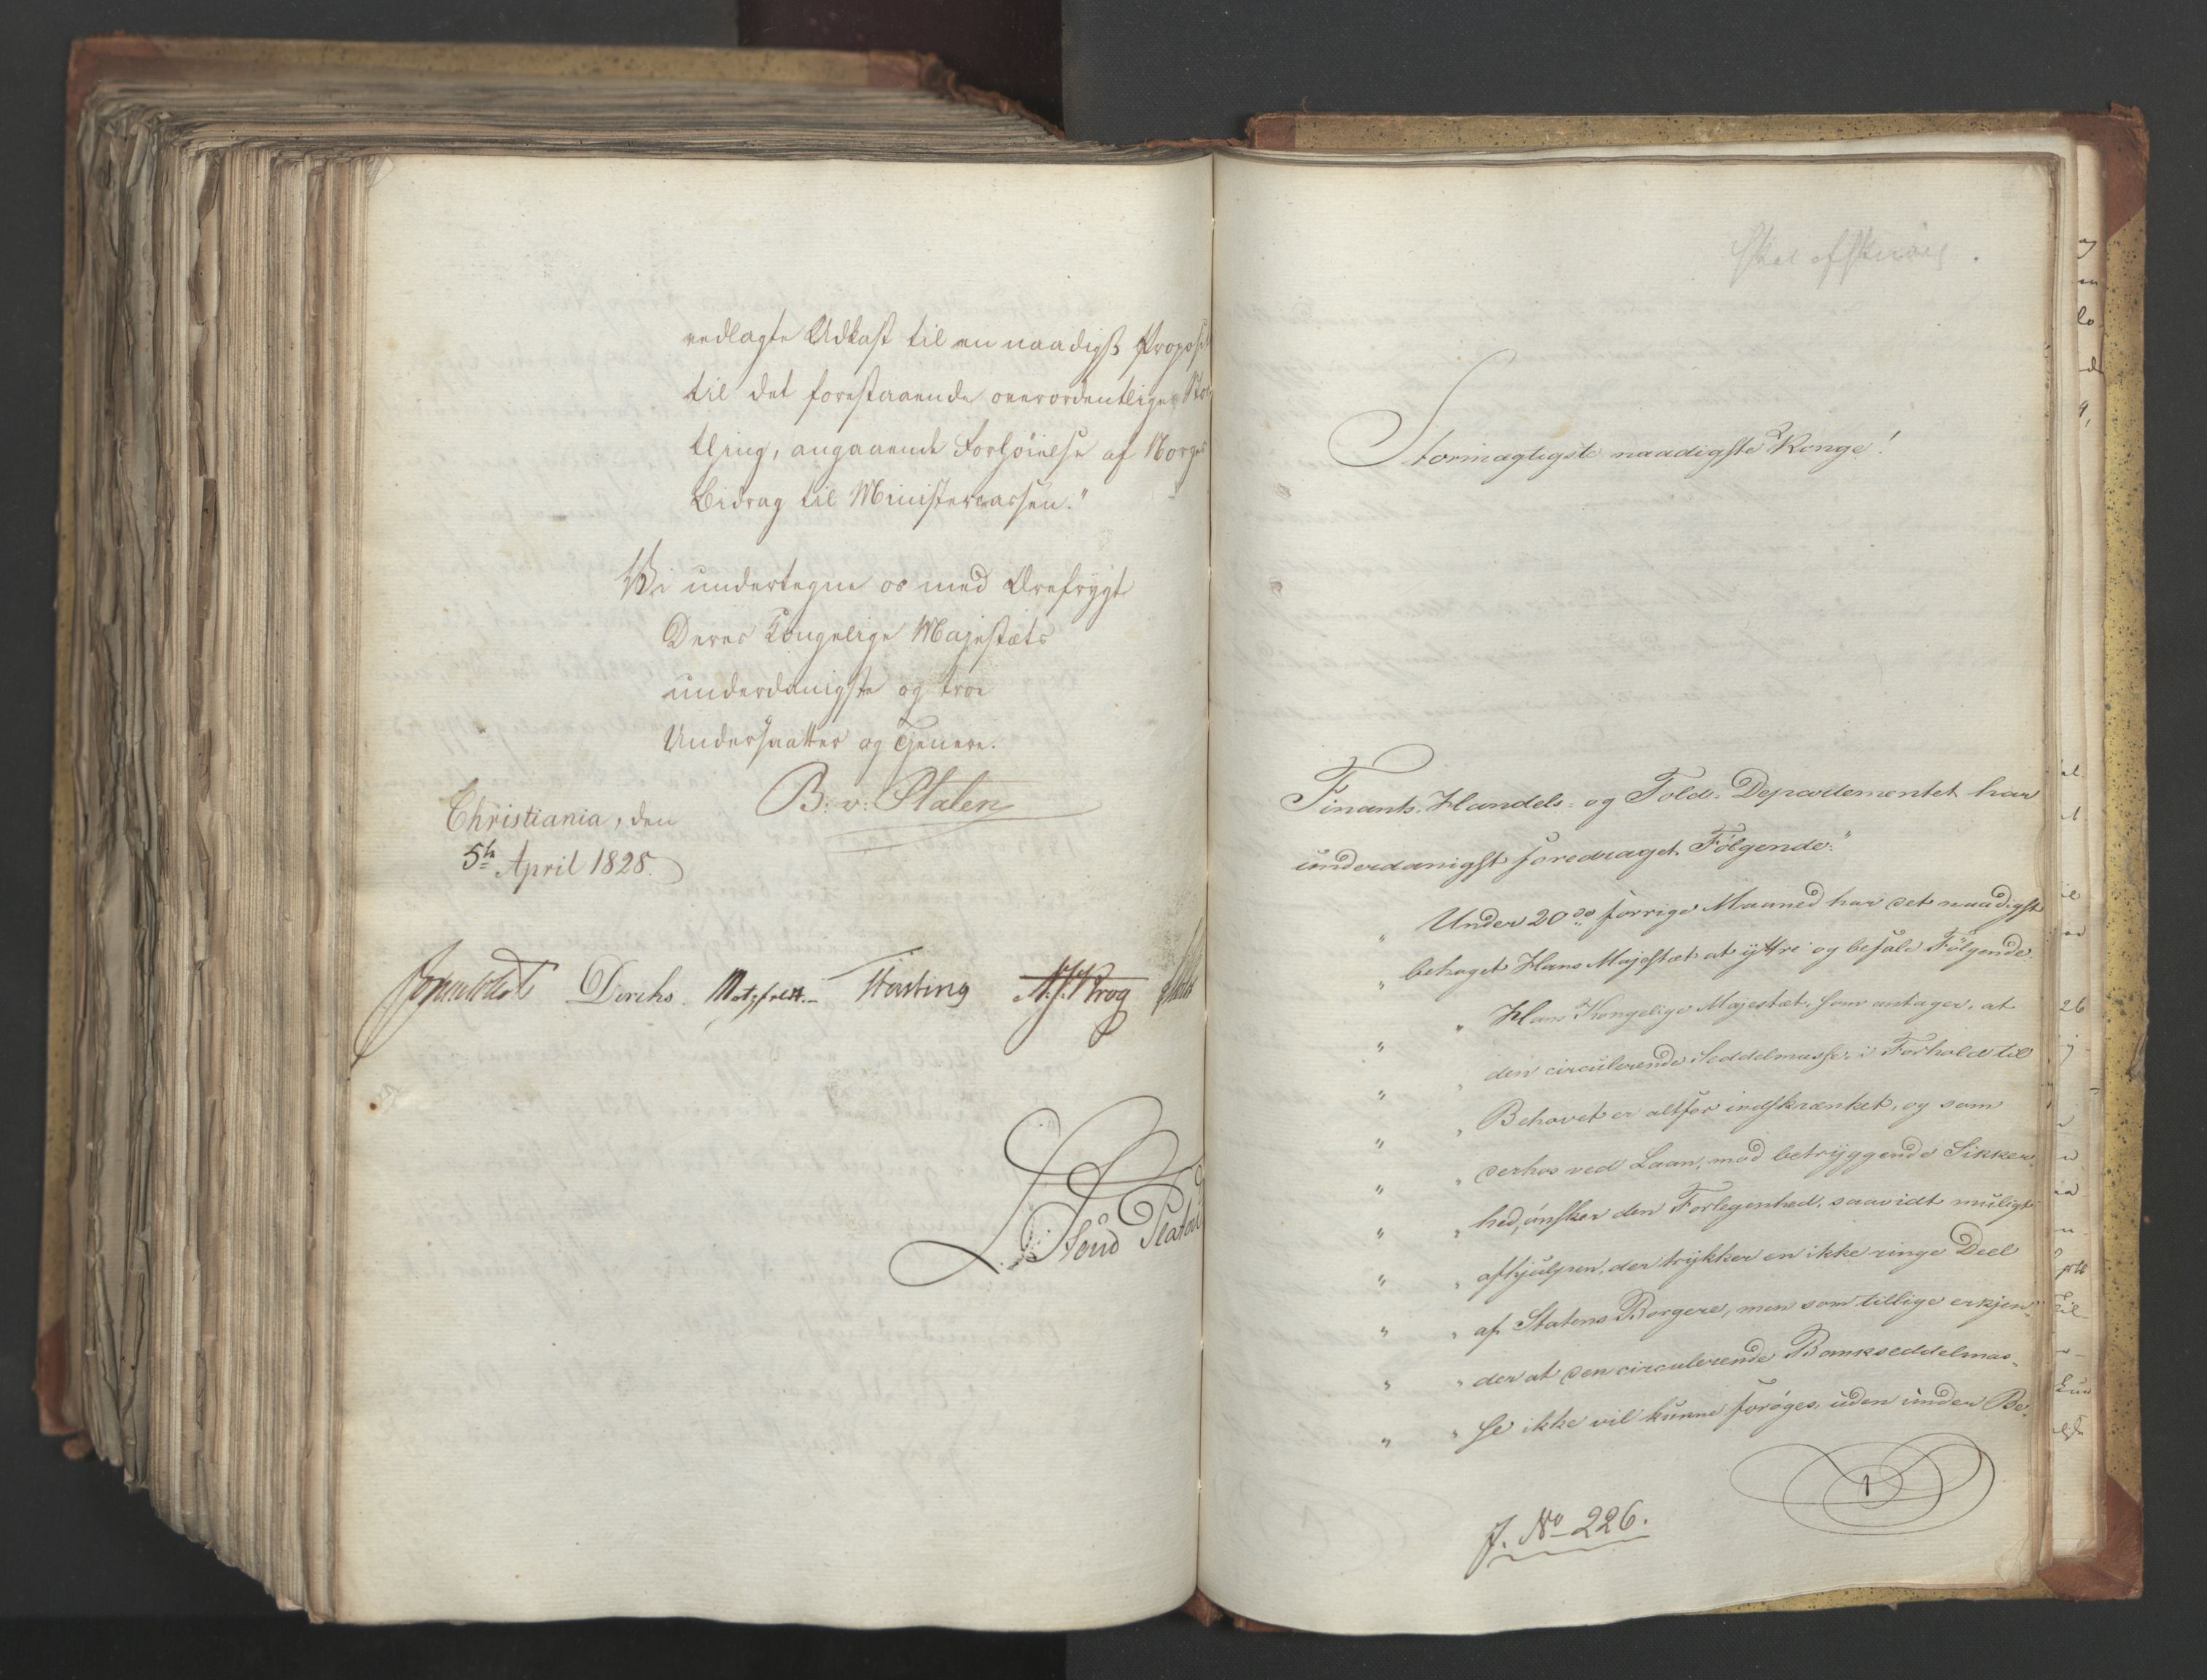 vedlagte Udkast til en naadigst Proposi
til det forestaaende overordentlige Stor
thing, angaaende Forhøielse af Norges
Bidrag til Ministercassen."
Vi undertegne os med Ærefrygt
Deres Kongelige Majestæts
underdanigste og troe
Undersaatter og Tjenere.
B: v: Platen
Christiania, den
5te April 1828.
Sommhielm Diriks. Motzfeldt. Fasting N. J. Krog
Skal afskrives.
Stormægtigste naadigste Konge!
Finants- Handels- og Told- Departementet har
underdanigst foredraget Følgende:"
" Under 20de forrige Maaned har det naadigst
" behaget Hans Majestæt at yttre og befale Følgende
" " Hans Kongelige Majestæt, som antager, at
" " den circulerende Seddelmasse i Forhold til
" " Behovet er altfor indskrænket, og som
" " derhos ved Laan, mod betryggende Sikker-
" " hed, ønsker den Forlegenhed, saavidt muligt
" " afhjulpen, der trykker en ikke ringe Deel
" " af Statens Borgere, men som tillige erkjen-
" " der at den circulerende Bankseddelmas-
" " se ikke vil kunne forøges, uden under Be-
1
J. No 226.